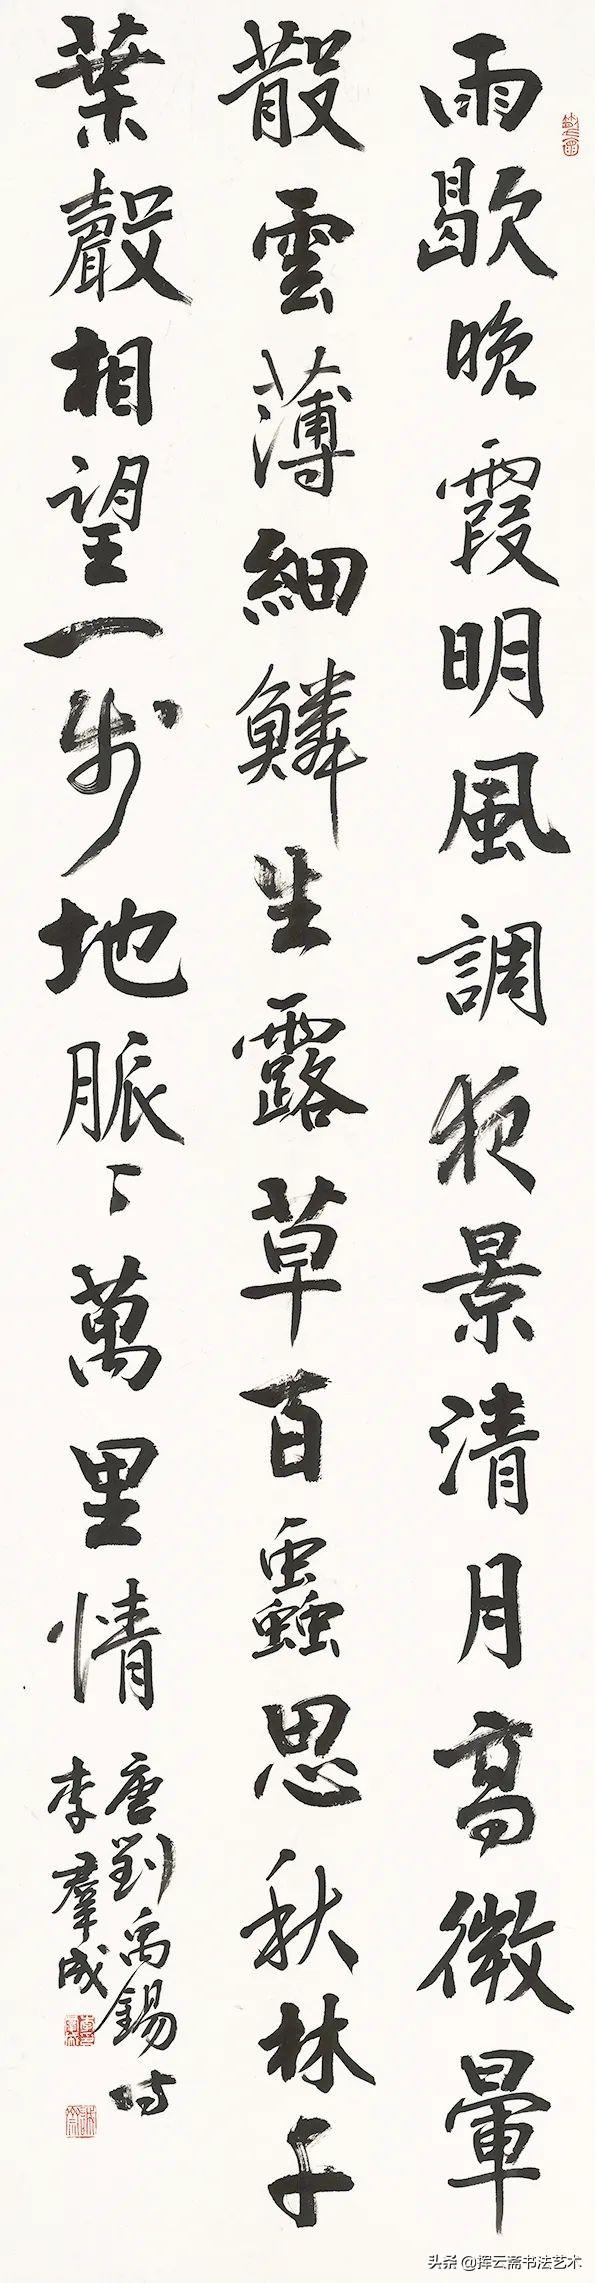 雨歇晚霞明風調夜景清月高微暈
散雲薄細鱗生露草百蟲思秋林千
葉聲相望一步地脈〻萬里情
唐劉禹錫詩
李羣成
头条 @挥云斋书法艺术